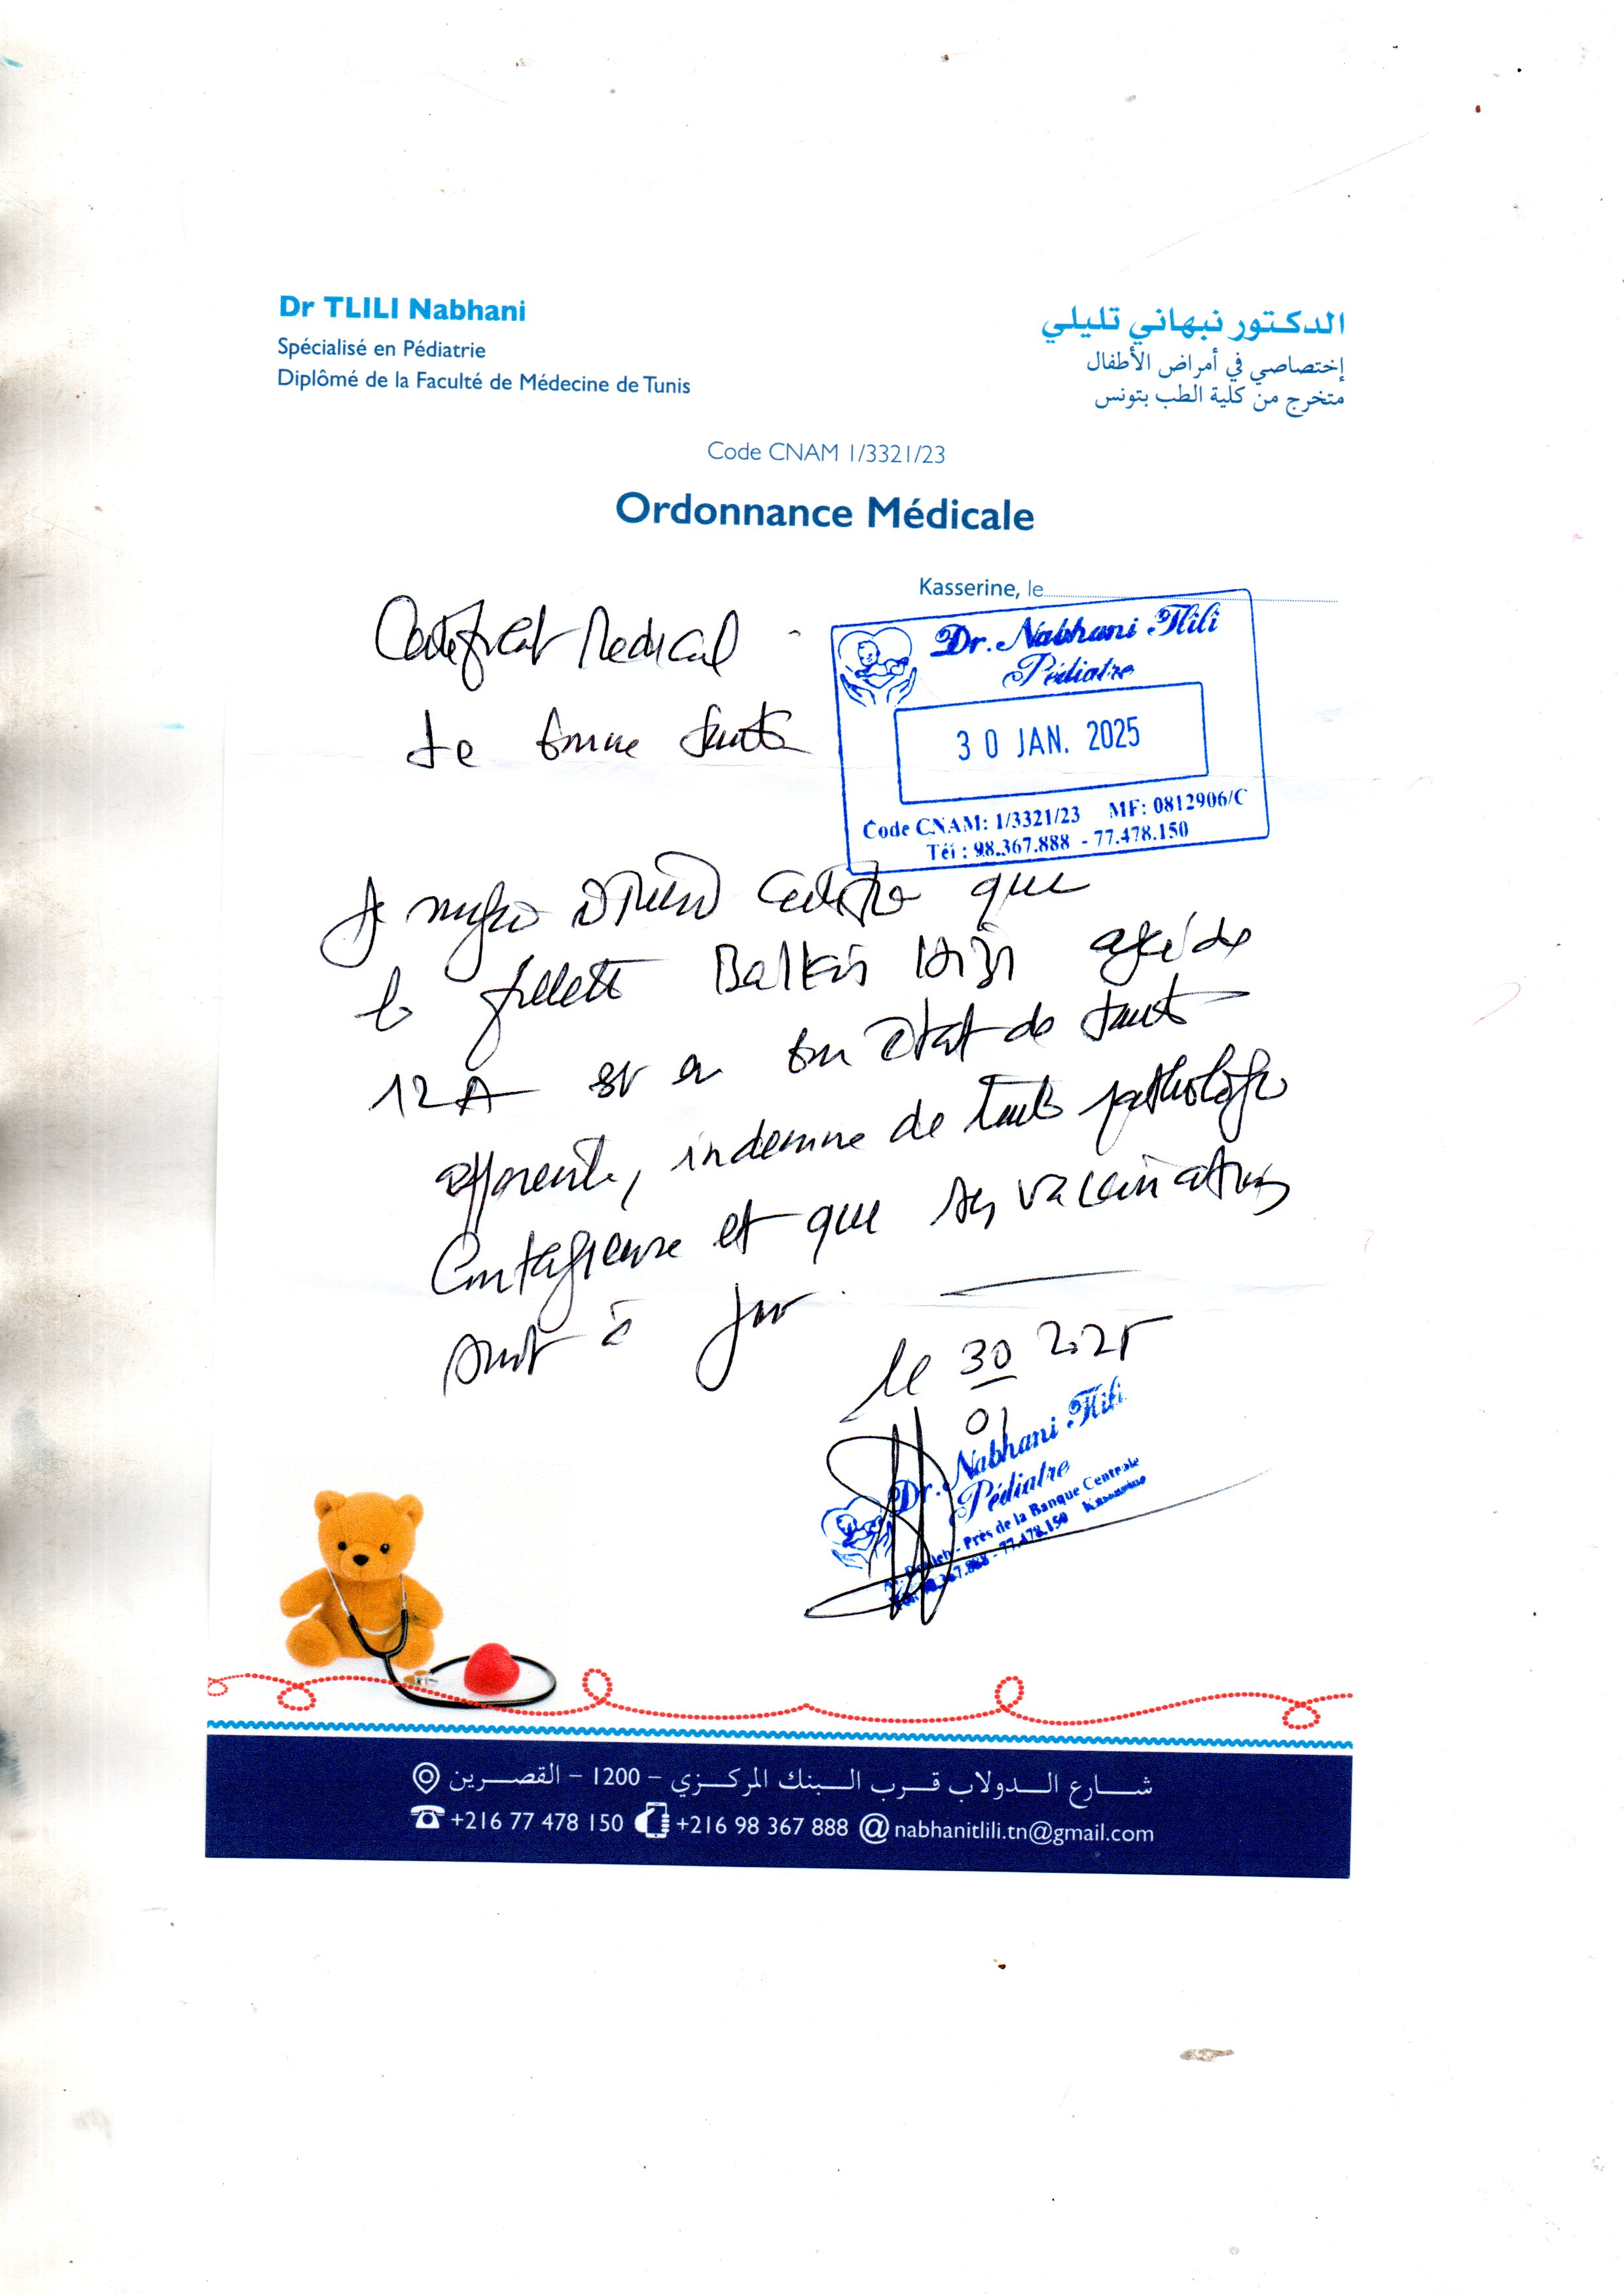 Dr TLILI Nabhani
Spécialisé en Pédiatrie
Diplômé de la Faculté de Médecine de Tunis
الدكتور نبهاني تليلي
إختصاصي في أمراض الأطفال
متخرج من كلية الطب بتونس
Code CNAM 1/3321/23
Ordonnance Médicale
Kasserine, le
Certificat Medical
de bonne santé
Dr. Nabhani Tlili
Pédiatre
30 JAN. 2025
Code CNAM: 1/3321/23 MF: 0812906/C
Tél : 98.367.888 - 77.478.150
Je certifie que
la fillette Balkis agée de
12 A est en bon état de santé
apparente, indemne de toute pathologie
contagieuse et que ses vaccinations
sont à jour.
le 30 2025
01
Dr. Nabhani Tlili
Pédiatre
Près de la Banque Centrale Kasserine
98.367.888 - 77.478.150
شارع الدولاب قرب البنك المركزي - 1200 - القصرين
+216 77 478 150 +216 98 367 888 @ nabhanitlili.tn@gmail.com